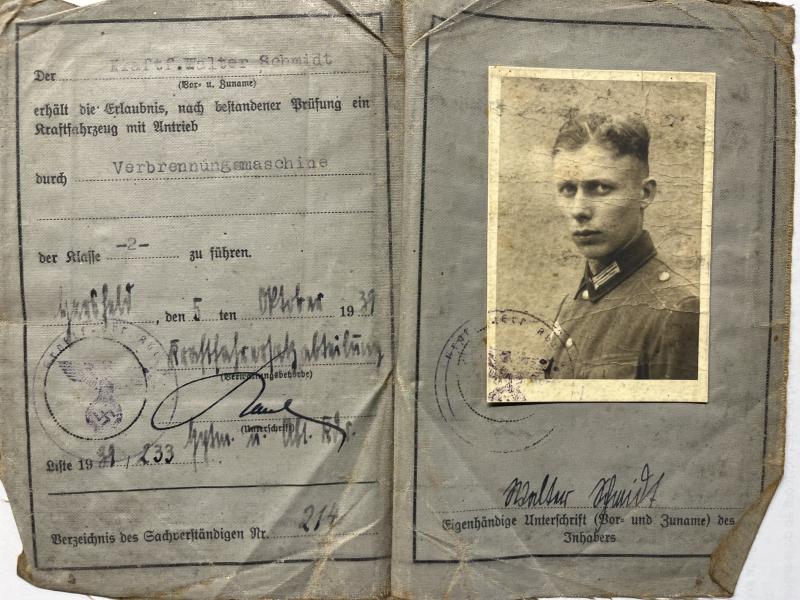 Der Kraftf. Walter Schmidt
(Vor- u. Zuname)
erhält die Erlaubnis, nach bestandener Prüfung ein
Kraftfahrzeug mit Antrieb
durch Verbrennungsmaschine
der Klasse -2- zu führen.
Hersfeld, den 5 ten Oktober 1939
Kraftfahrersatzabteilung
(Verwaltungsbehörde)
(Unterschrift)
Hptm. u. Abt. Kdr.
Liste 1939, 233
Verzeichnis des Sachverständigen Nr. 214
Walter Schmidt
Eigenhändige Unterschrift (Vor- und Zuname) des
Inhabers